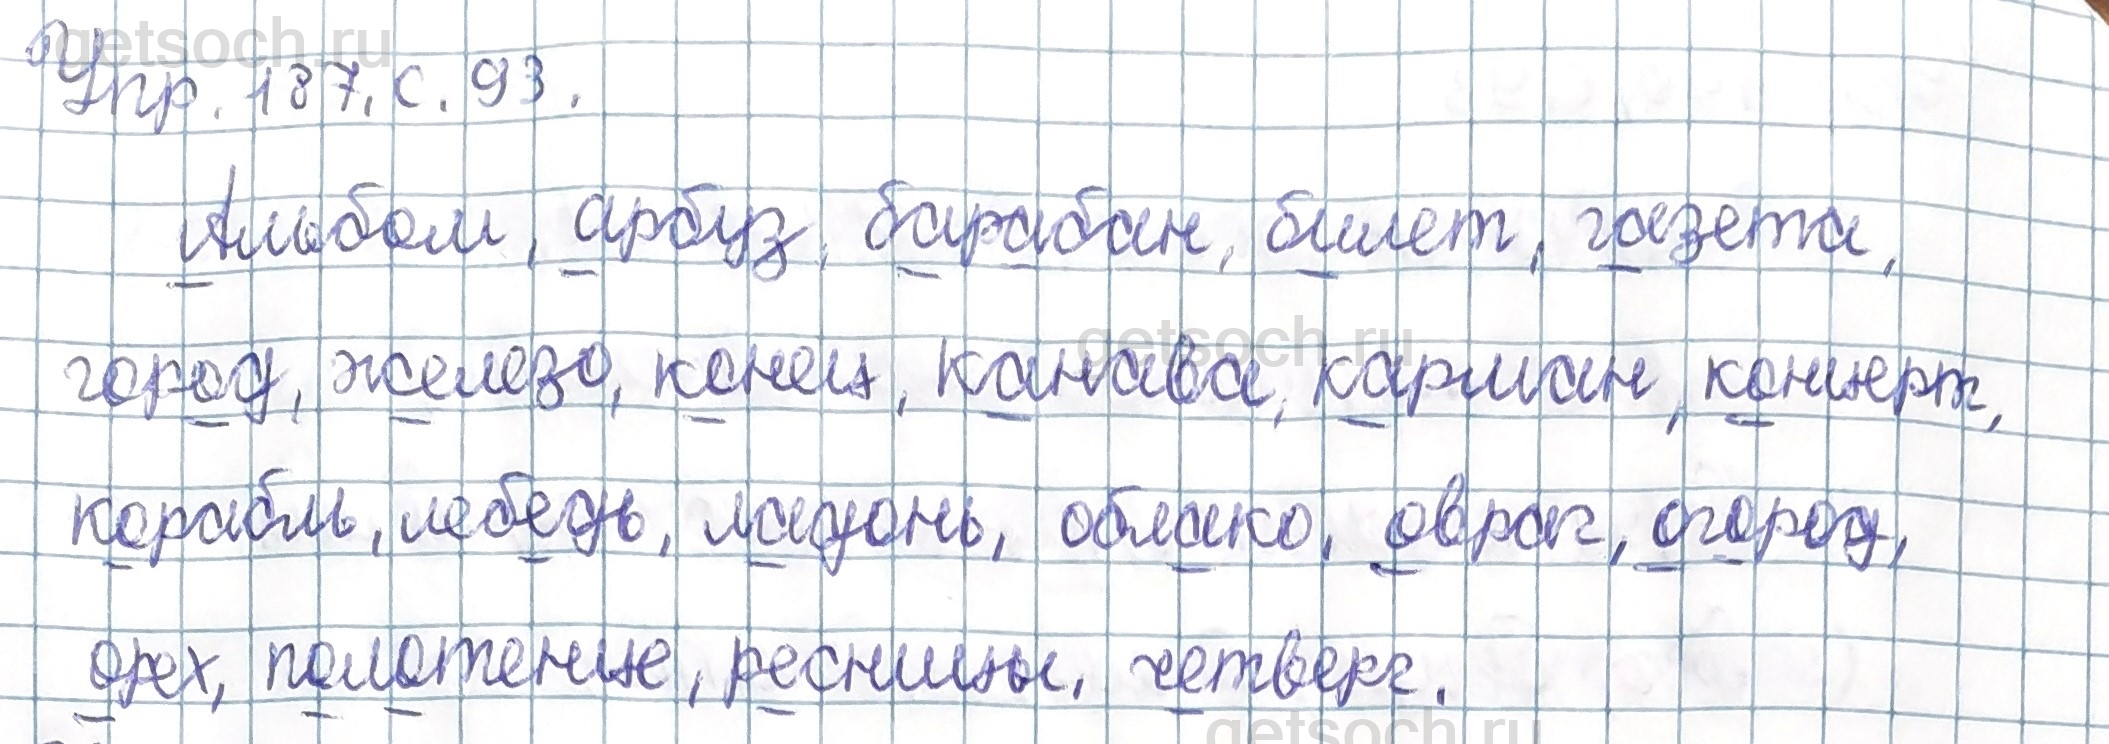 getsoch.ru
getsoch.ru
Упр. 187, с. 93.
Альбом, арбуз, барабан, билет, газета,
getsoch.ru
город, железо, конец, канава, карман, концерт,
корабль, лебедь, ладонь, облако, овраг, огород,
орех, полотенце, ресницы, четверг.
getsoch.ru